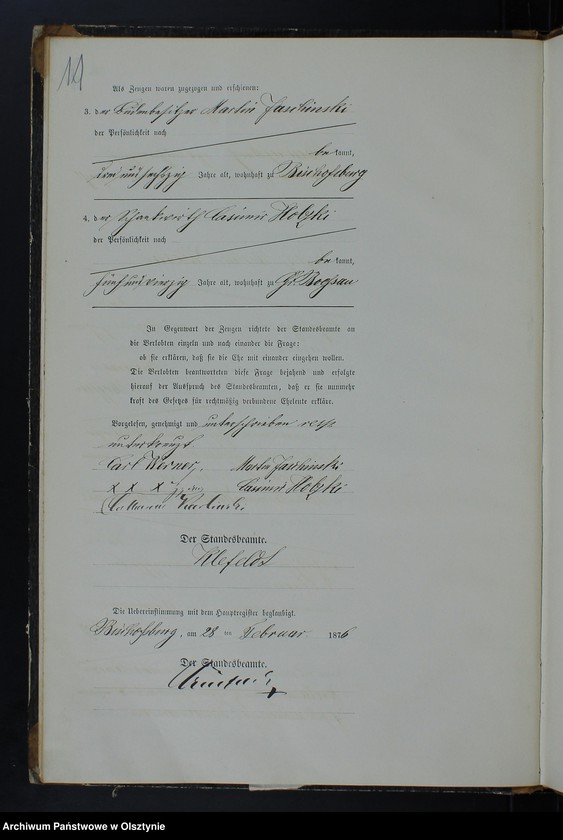 14
Als Zeugen waren zugezogen und erschienen:
3. der Budenbesitzer Martin Jaschinski
der Persönlichkeit nach
bekannt,
drei und sechszig Jahre alt, wohnhaft zu Bischofsburg
4. der Schankwirth Casimir Hotzki
der Persönlichkeit nach
bekannt,
fünf und vierzig Jahre alt, wohnhaft zu Gr. Boessau
In Gegenwart der Zeugen richtete der Standesbeamte an
die Verlobten einzeln und nach einander die Frage:
ob sie erklären, daß sie die Ehe mit einander eingehen wollen.
Die Verlobten beantworteten diese Frage bejahend und erfolgte
hierauf der Ausspruch des Standesbeamten, daß er sie nunmehr
kraft des Gesetzes für rechtmäßig verbundene Eheleute erkläre.
Vorgelesen, genehmigt und unterschrieben resp.
unterkreuzt
Carl Werner. Martin Jaschinski
X X X Casimir Hotzki
Der Standesbeamte.
Klefeldt
Die Uebereinstimmung mit dem Hauptregister beglaubigt.
Bischofsburg, am 28 ten Februar 1876
Der Standesbeamte.
Archiwum Państwowe w Olsztynie